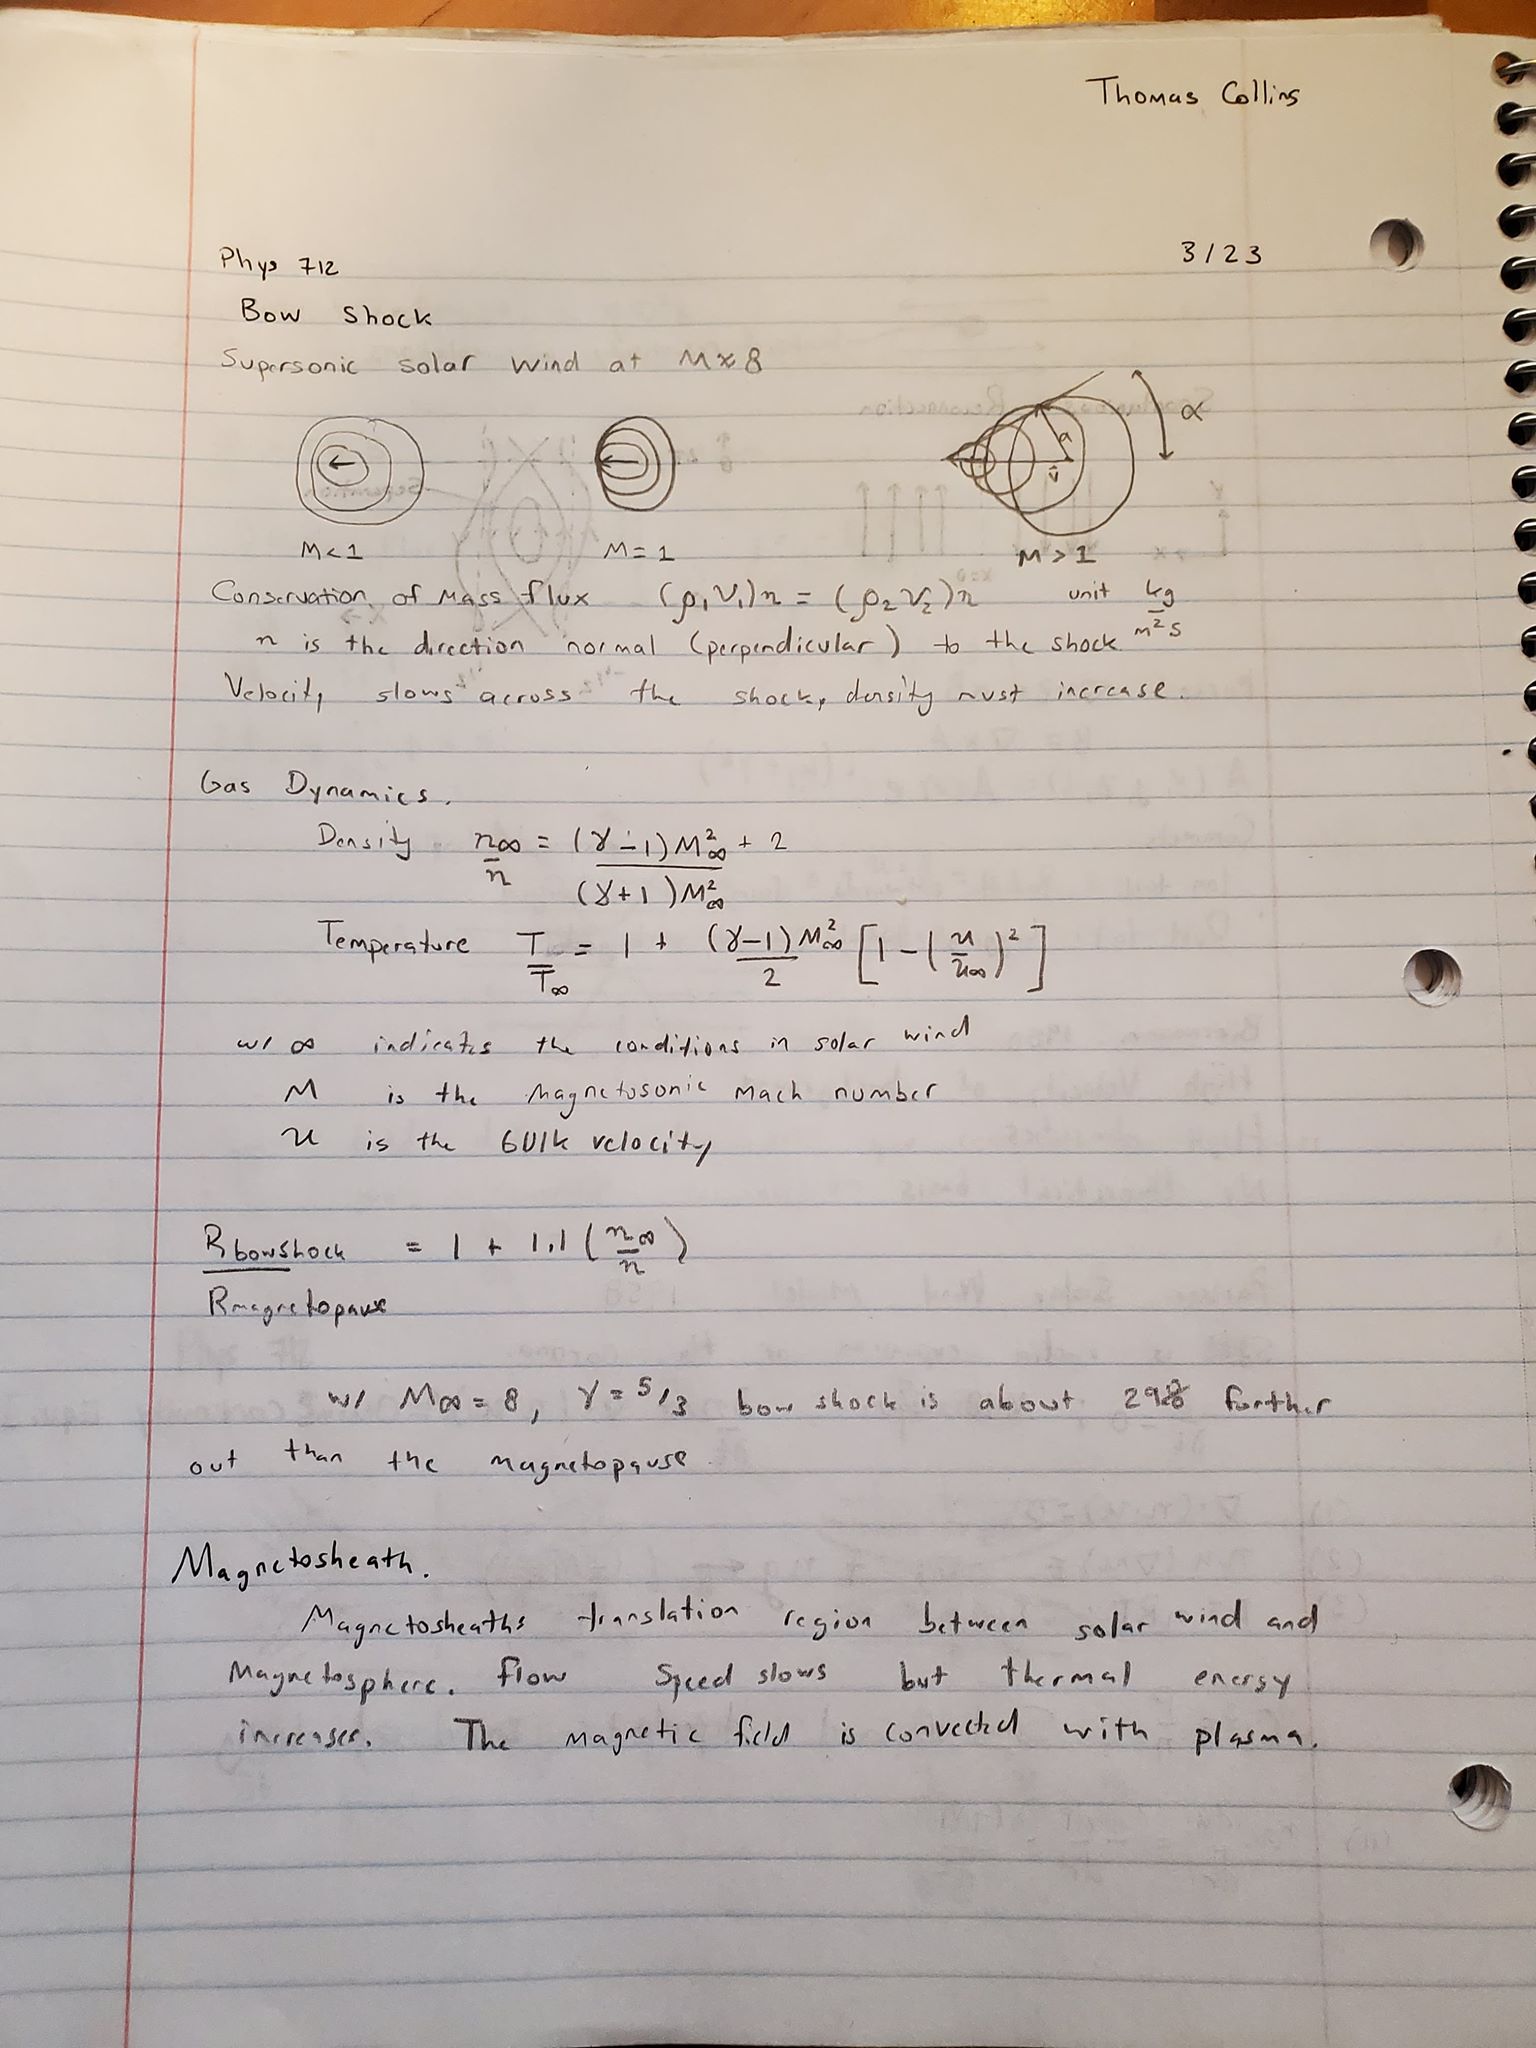 Thomas Collins
Phys 712 3/23
Bow Shock
Supersonic solar wind at M≈8
α
a
v̄
M<1 M=1 M>1
Conservation of Mass flux (ρ₁V₁)n = (ρ₂V₂)n unit kg/m²s
n is the direction normal (perpendicular) to the shock
Velocity slows across the shock, density must increase.
Gas Dynamics.
Density n∞/n = (γ-1)M²∞ + 2 / (γ+1)M²∞
Temperature T/T∞ = 1 + (γ-1)M²∞/2 [1-(u/u∞)²]
w/ ∞ indicates the conditions in solar wind
M is the Magnetosonic Mach number
u is the bulk velocity
Rbowshock/Rmagnetopause = 1 + 1.1 (n∞/n)
w/ M∞ = 8, γ = 5/3 bow shock is about further
out than the magnetopause
Magnetosheath.
Magnetosheath: translation region between solar wind and
Magnetosphere. Flow Speed slows but thermal energy
increases. The magnetic field is convected with plasma.